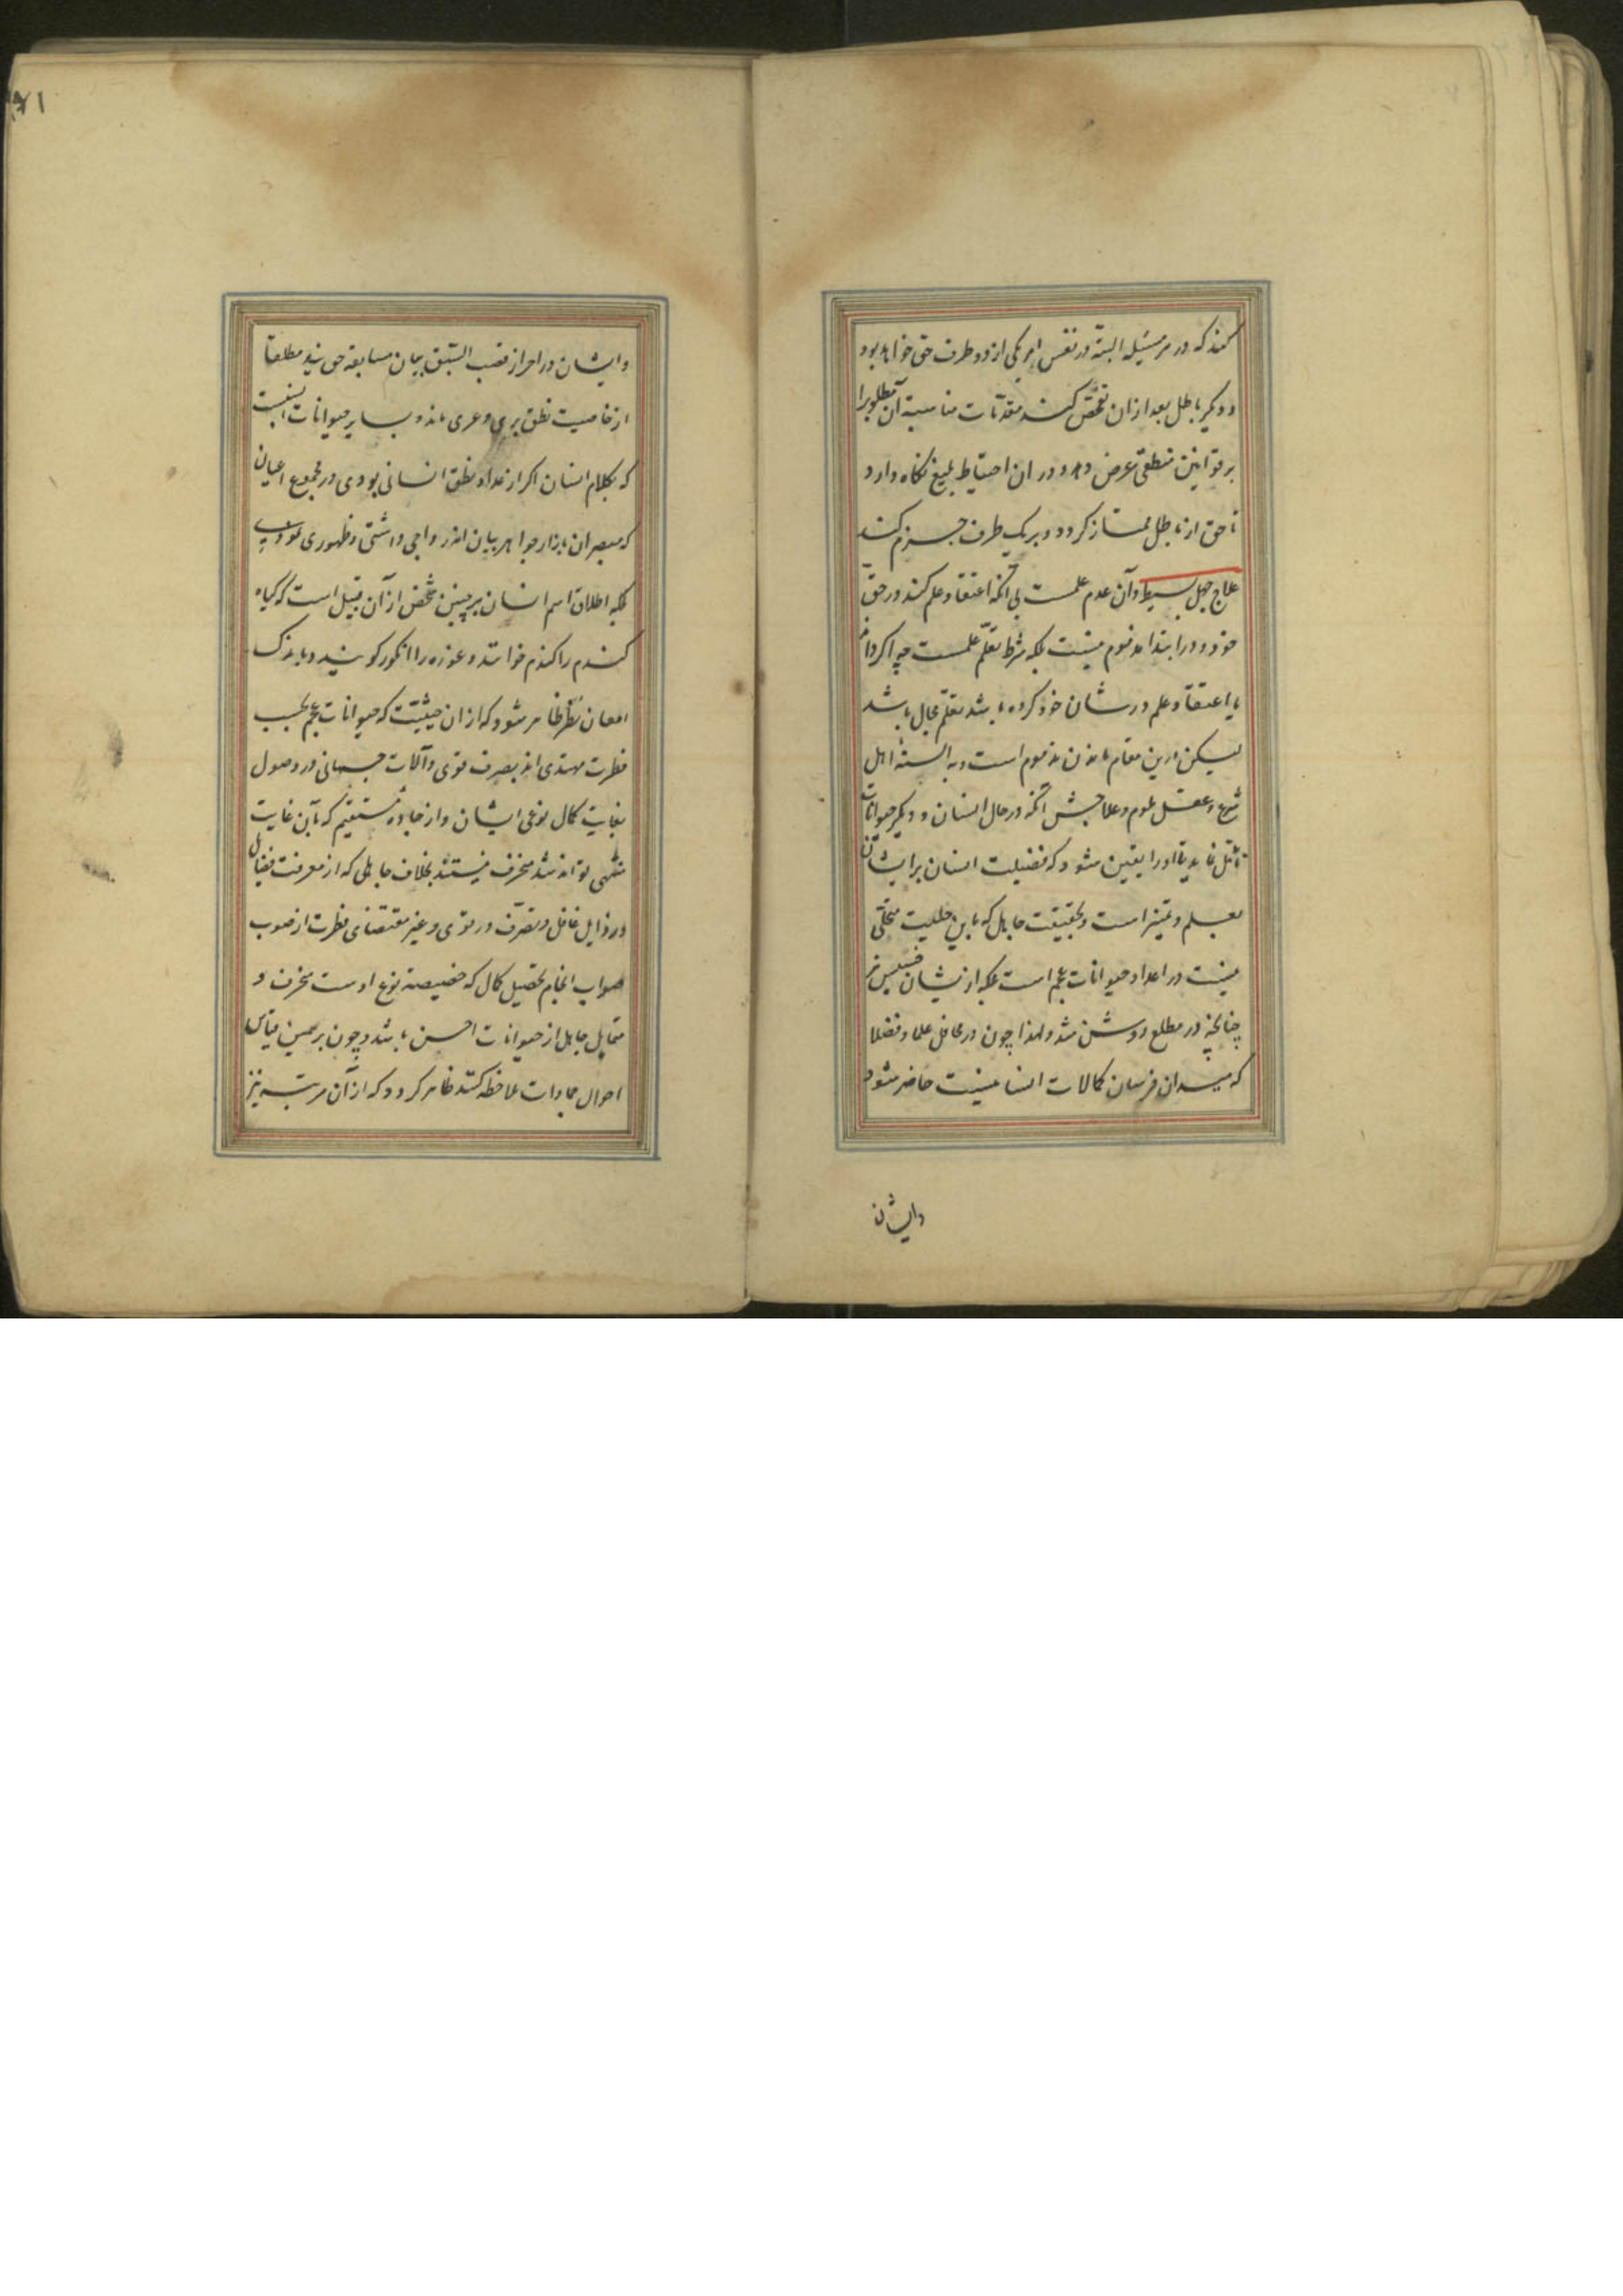 کند که در هر مسئله البته در نفس امر یکی از دو طرف حق خواهد بود
و دیگر باطل بعد از ان تفحص کند مقدمات مناسبه آن مطلوبرا
بر قوانین منطقی عرض دهد و در ان احتیاط بلیغ نکاه دارد
تا حق از باطل ممتاز کردد و بر یک طرف جزم کند
علاج جهل بسیط و آن عدم علمست بی آنکه اعتقاد علم کند در حق
خود و در ابتدا مذموم نیست بلکه شرط تعلم علمست چه اکر داند
یا اعتقاد علم در شان خود کرده باشد تعلم محال باشد
لیکن درین مقام ماندن مذموم است و به السنهٔ اهل
شرع و عقل ملوم و علاجش آنکه در حال انسان و دیکر حیوانات
تأمل نماید تا او را یقین شود که فضیلت انسان بر ایشان
بعلم و تمیز است و بحقیقت جاهل که باین حلیت متحلی
نیست در اعداد حیوانات عجم است بلکه از یشان خسیس تر
چنانچه در مطلع روشن شد و لهذا چون در محافل علما و فضلا
که میدان فرسان کمالات انسانیست حاضر شود
وایشان
۷۱
و ایشان در احراز قصب السبق بیان مسابقه جویند مطلقا
از خاصیت نطق بری و عری ماند و بسایر حیوانات انسبست
که بکلام انسان اکر از عداد نطق انسانی بودی در مجموع اعیان
که مبصران بازار جواهر بیان اند رواجی داشتی و ظهوری نمودی
بلکه اطلاق اسم انسان بر چنین شخص از آن قبیل است که کیاه
کندم را کندم خوانند و غوزه را انکور کویند و باندک
امعان نظر ظاهر شود که از ان حیثیت که حیوانات عجم بحسب
فطرت مهتدی اند بصرف قوی و آلات جسمانی در وصول
بغایت کمال نوعی ایشان و از جاده مستقیم که بآن غایت
منتهی تواند شد منحرف نیستند بخلاف جاهلی که از معرفت فضایل
و رذایل غافل و تصرف در قوی بر غیر مقتضای فطرت از صوب
صواب انجام تحصیل کمال که خصیصه نوع اوست منحرف و
متمایل جاهل از حیوانات اخس باشد و چون بر همین قیاس
احوال جمادات ملاحظه کند ظاهر کردد که از آن مرتبه نیز